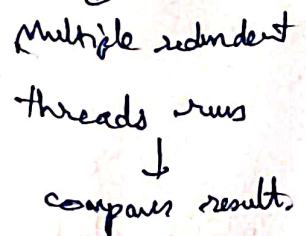 Multiple redundent
threads runs
↓
compares result.